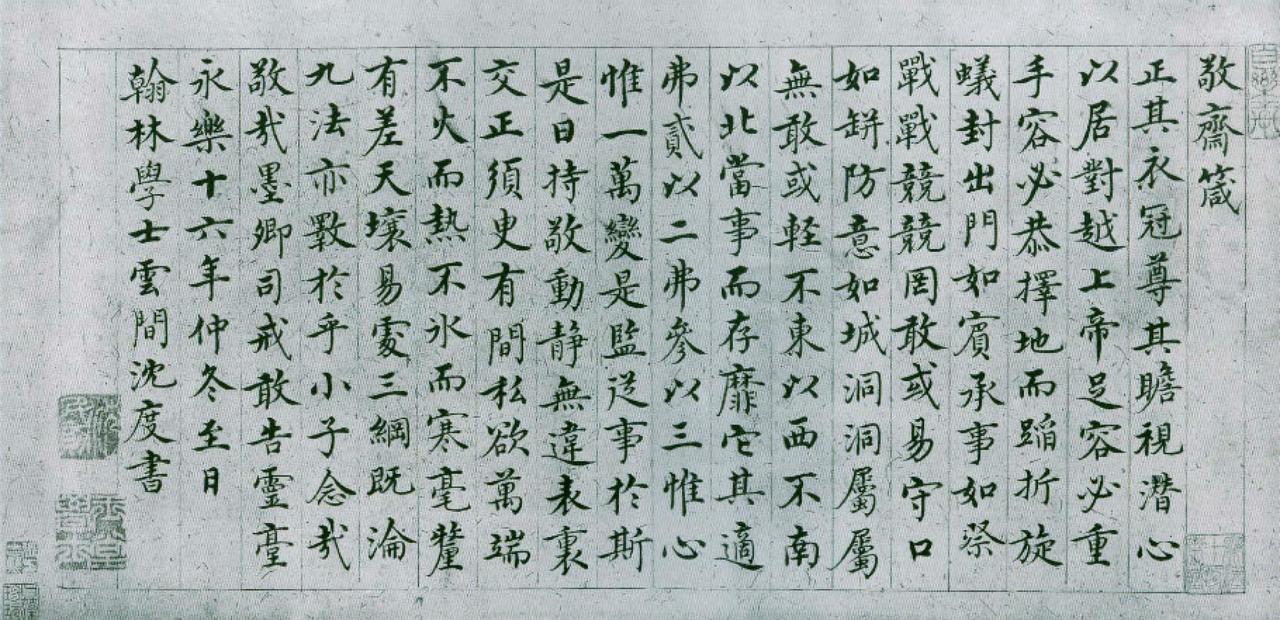 敬齋箴
正其衣冠尊其瞻視潛心
以居對越上帝足容必重
手容必恭擇地而蹈折旋
蟻封出門如賓承事如祭
戰戰兢兢罔敢或易守口
如缾防意如城洞洞屬屬
無敢或輕不東以西不南
以北當事而存靡它其適
弗貳以二弗參以三惟心
惟一萬變是監從事於斯
是曰持敬動静無違表裏
交正須臾有間私欲萬端
不火而熱不氷而寒毫釐
有差天壤易處三綱既淪
九法亦斁於乎小子念哉
敬哉墨卿司戒敢告靈臺
永樂十六年仲冬至日
翰林學士雲間沈度書